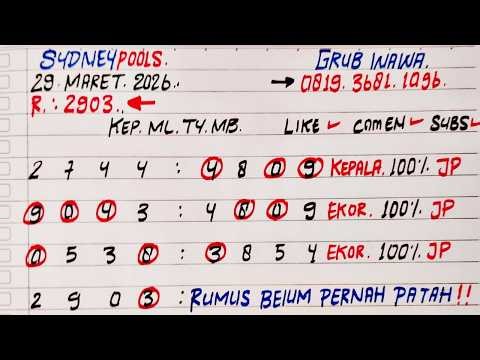 SYDNEYPOOLS. GRUB INAWA.
29. MARET. 2026.. → 0819. 3681. 1096.
R. : 2903.. ←
KEP. ML. TY. MB. LIKE ✓ COMEN ✓ SUBS ✓
2 7 4 4 : 4 8 0 9 KEPALA. 100% JP
9 0 4 3 : 4 0 0 9 EKOR. 100% JP
0 5 3 0 : 3 8 5 4 EKOR. 100% JP
2 9 0 3 : RUMUS BEIUM PERNAH PATAH !!